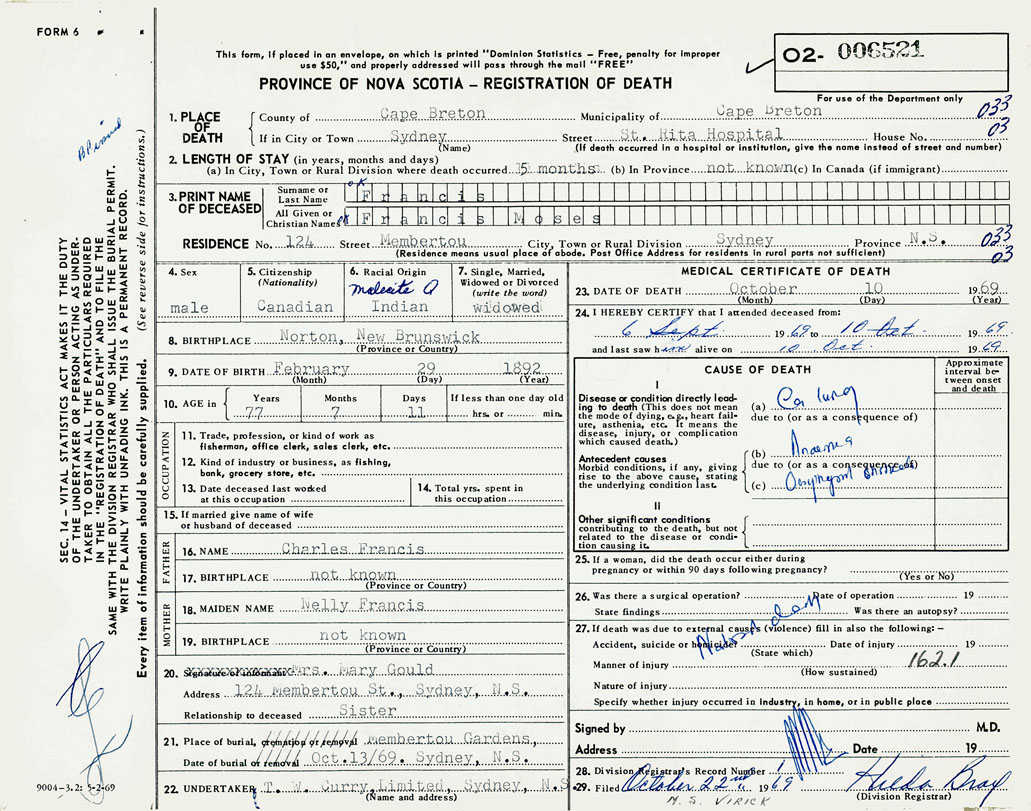 FORM 6
This form, if placed in an envelope, on which is printed "Dominion Statistics – Free, penalty for improper
use $50," and properly addressed will pass through the mail "FREE"
PROVINCE OF NOVA SCOTIA – REGISTRATION OF DEATH
02- 006521
For use of the Department only
1. PLACE OF DEATH
County of Cape Breton Municipality of Cape Breton 033
If in City or Town Sydney Street St. Rita Hospital House No. 03
(Name) (If death occurred in a hospital or institution, give the name instead of street and number)
2. LENGTH OF STAY (in years, months and days)
(a) In City, Town or Rural Division where death occurred 15 months (b) In Province not known (c) In Canada (if immigrant)
3. PRINT NAME OF DECEASED
Surname or Last Name OK Francis
All Given or Christian Names OK Francis Moses
RESIDENCE No. 124 Street Membertou City, Town or Rural Division Sydney Province N.S. 033
(Residence means usual place of abode. Post Office Address for residents in rural parts not sufficient) 03
4. Sex
male
5. Citizenship
(Nationality)
Canadian
6. Racial Origin
Malecite
Indian
7. Single, Married,
Widowed or Divorced
(write the word)
widowed
8. BIRTHPLACE Norton, New Brunswick
(Province or Country)
9. DATE OF BIRTH February 29 1892
(Month) (Day) (Year)
10. AGE in
Years Months Days If less than one day old
77 7 11 hrs. or min.
OCCUPATION
11. Trade, profession, or kind of work as
fisherman, office clerk, sales clerk, etc.
12. Kind of industry or business, as fishing,
bank, grocery store, etc.
13. Date deceased last worked
at this occupation
14. Total yrs. spent in
this occupation
15. If married give name of wife
or husband of deceased
FATHER
16. NAME Charles Francis
17. BIRTHPLACE not known
(Province or Country)
MOTHER
18. MAIDEN NAME Nelly Francis
19. BIRTHPLACE not known
(Province or Country)
20. Signature of informant Mrs. Mary Gould
Address 124 Membertou St., Sydney, N.S.
Relationship to deceased Sister
21. Place of burial, cremation or removal Membertou Gardens,
Date of burial or removal Oct.13/69. Sydney, N.S.
22. UNDERTAKER T. W. Curry, Limited, Sydney, N.S.
(Name and address)
MEDICAL CERTIFICATE OF DEATH
23. DATE OF DEATH October 10 1969
(Month) (Day) (Year)
24. I HEREBY CERTIFY that I attended deceased from:
6 Sept 1969 to 10 Oct. 1969
and last saw him alive on 10 Oct. 1969
CAUSE OF DEATH
Approximate
interval be-
tween onset
and death
I
Disease or condition directly lead-
ing to death (This does not mean
the mode of dying, e.g., heart failure,
asthenia, etc. It means the
disease, injury, or complication
which caused death.)
(a) Ca lung
due to (or as a consequence of)
Antecedent causes
Morbid conditions, if any, giving
rise to the above cause, stating
the underlying condition last.
(b) Anaemia
due to (or as a consequence of)
(c)
II
Other significant conditions
contributing to the death, but not
related to the disease or condi-
tion causing it.
25. If a woman, did the death occur either during
pregnancy or within 90 days following pregnancy?
(Yes or No)
26. Was there a surgical operation? Date of operation 19
State findings Was there an autopsy?
27. If death was due to external causes (violence) fill in also the following: –
Natural death
Accident, suicide or homicide? Date of injury 19
(State which)
Manner of injury 162.1
(How sustained)
Nature of injury
Specify whether injury occurred in Industry, in home, or in public place
Signed by M.D.
Address Date 19
28. Division Registrar's Record Number
29. Filed October 22nd 1969 Hilda Bray
(Division Registrar)
M. S. VIRICK
SEC. 14 – VITAL STATISTICS ACT MAKES IT THE DUTY
OF THE UNDERTAKER OR PERSON ACTING AS UNDER-
TAKER TO OBTAIN ALL THE PARTICULARS REQUIRED
IN THE "REGISTRATION OF DEATH" AND TO FILE THE
SAME WITH THE DIVISION REGISTRAR WHO SHALL ISSUE THE BURIAL PERMIT.
WRITE PLAINLY WITH UNFADING INK. THIS IS A PERMANENT RECORD.
Every item of information should be carefully supplied. (See reverse side for instructions.)
9004–3.2: 5-2-69